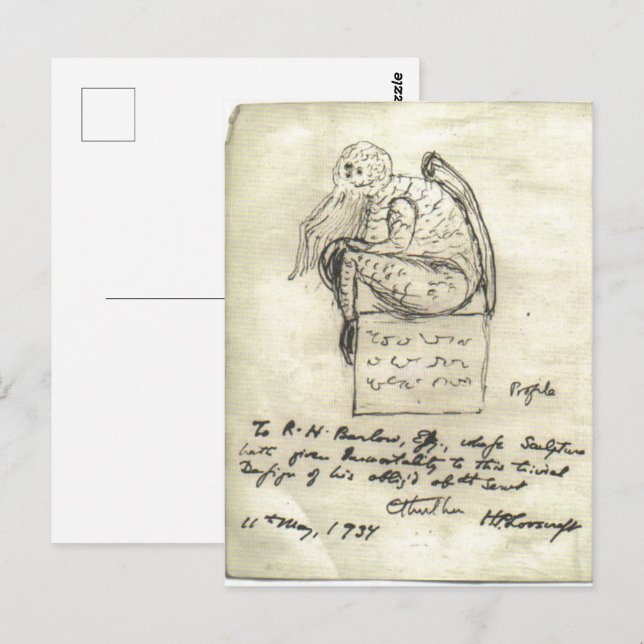 zzle
Profile
To R. H. Barlow, Esq., whose Sculpture
hath given Immortality to this trivial
Design of his oblig'd obt Servt
Cthulhu
11th May, 1934 HPLovecraft